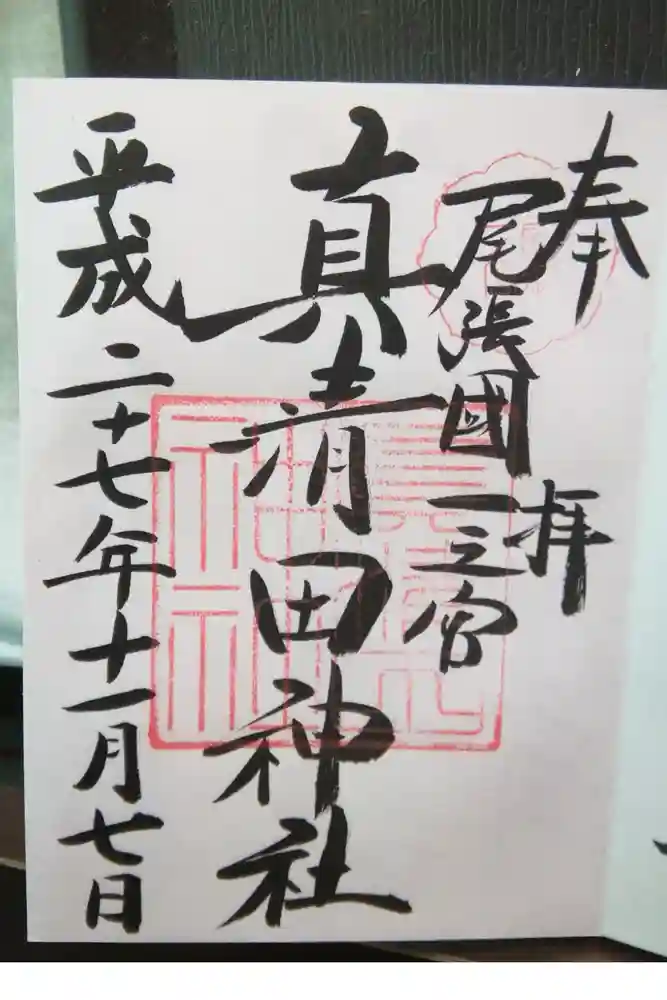 奉拝
尾張國一之宮
真清田神社
平成二十七年十一月七日